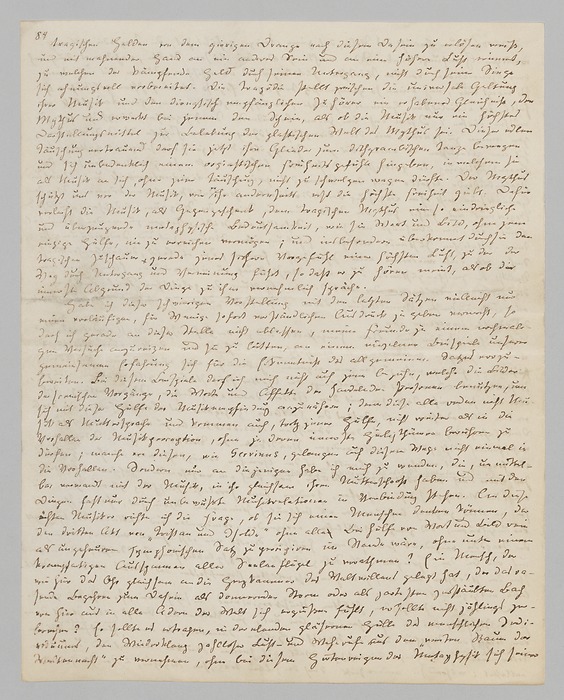 84
tragischen Helden von dem gierigen Drange nach diesem Dasein zu erlösen weiß,
und mit mahnender Hand an ein andres Sein und an eine höhere Lust erinnert,
zu welcher der kämpfende Held durch seinen Untergang, nicht durch seine Siege
sich ahnungsvoll vorbereitet. Die Tragödie stellt zwischen die universale Geltung
ihrer Musik und den dionysisch empfänglichen Zuhörer ein erhabenes Gleichniß, den
Mythus und erweckt bei jenem den Schein, als ob die Musik nur ein höchstes
Darstellungsmittel zur Belebung der plastischen Welt des Mythus sei. Dieser edlen
Täuschung vertrauend darf sie jetzt ihre Glieder zum dithyrambischen Tanze bewegen
und sich unbedenklich einem orgiastischen Freiheitsgefühle hingeben, in welchem sie
als Musik an sich, ohne jene Täuschung, nicht zu schwelgen wagen dürfte. Der Mythus
schützt uns vor der Musik, wie er ihr andrerseits erst die höchste Freiheit giebt. Dafür
verleiht die Musik, als Gegengeschenk, dem tragischen Mythus eine so eindringliche
und überzeugende metaphysische Bedeutsamkeit, wie sie Wort und Bild, ohne jene
einzige Hülfe, nie zu erreichen vermögen; und insbesondere überkommt durch sie den
tragischen Zuschauer gerade jenes sichere Vorgefühl einer höchsten Lust, zu der der
Weg durch Untergang und Verneinung führt, so daß er zu hören meint, als ob der
innerste Abgrund der Dinge zu ihm vernehmlich spräche.
Habe ich dieser schwierigen Vorstellung mit den letzten Sätzen vielleicht nur
einen vorläufigen, für Wenige sofort verständlichen Ausdruck zu geben vermocht, so
darf ich gerade an dieser Stelle nicht ablassen, meine Freunde zu einem nochmali-
gen Versuche anzureizen und sie zu bitten, an einem einzelnen Beispiele unsrer
gemeinsamen Erfahrung sich für die Erkenntniß des allgemeinen Satzes vorzu-
bereiten. Bei diesem Beispiele darf ich mich nicht auf jene beziehn, welche die Bilder
der scenischen Vorgänge, die Worte und Affekte der handelnden Personen benutzen, um
sich mit dieser Hülfe der Musikempfindung anzunähern; denn diese alle reden nicht Mu-
sik als Muttersprache und kommen auch, trotz jener Hülfe, nicht weiter als in die
Vorhallen der Musikperception, ohne je deren innerste Heiligthümer berühren zu
dürfen; manche von diesen, wie Gervinus, gelangen auf diesem Wege nicht einmal in
die Vorhallen. Sondern nur an diejenigen habe ich mich zu wenden, die, unmittel-
bar verwandt mit der Musik, in ihr gleichsam ihren Mutterschooß haben und mit den
Dingen fast nur durch unbewußte Musikrelationen in Verbindung stehen. An diese
ächten Musiker richte ich die Frage, ob sie sich einen Menschen denken können, der
den dritten Akt von „Tristan und Isolde“ ohne alle Beihülfe von Wort und Bild rein
als ungeheuren symphonischen Satz zu percipiren im Stande wäre, ohne unter einem
krampfartigen Ausspannen aller Seelenflügel zu verathmen? Ein Mensch, der
wie hier das Ohr gleichsam an die Herzkammer des Weltwillens gelegt hat, der das ra-
sende Begehren zum Dasein als donnernden Strom oder als zartesten zerstäubten Bach
von hier aus in alle Adern der Welt sich ergießen fühlt, er sollte nicht jählings zer-
brechen? Er sollte es ertragen, in der elenden gläsernen Hülle des menschlichen Indi-
viduums, den Wiederklang zahlloser Lust- und Weherufe aus dem „weiten Raum der
Weltennacht“ zu vernehmen, ohne bei diesem Hirtenreigen der Metaphysik sich seiner